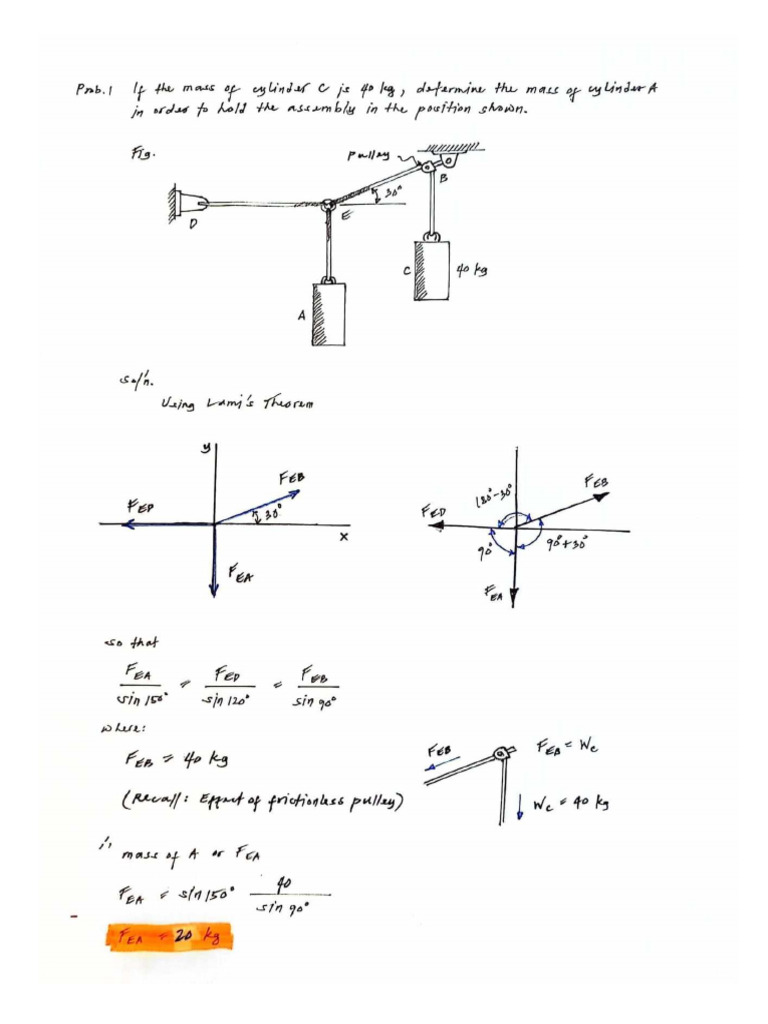 Prob.1 If the mass of cylinder C is 40 kg, determine the mass of cylinder A
in order to hold the assembly in the position shown.
Fig.
pulley
B
30°
E
D
C 40 kg
A
sol'n.
Using Lami's Theorem
y
FEB
FED
30°
x
FEA
FEB
180°-30°
FED
90°
90°+30°
FEA
so that
FEA / sin 150° = FED / sin 120° = FEB / sin 90°
where:
FEB = 40 kg
(Recall: Effect of frictionless pulley)
FEB
FEB = Wc
Wc = 40 kg
∴ mass of A or FEA
FEA = sin 150° 40 / sin 90°
FEA = 20 kg